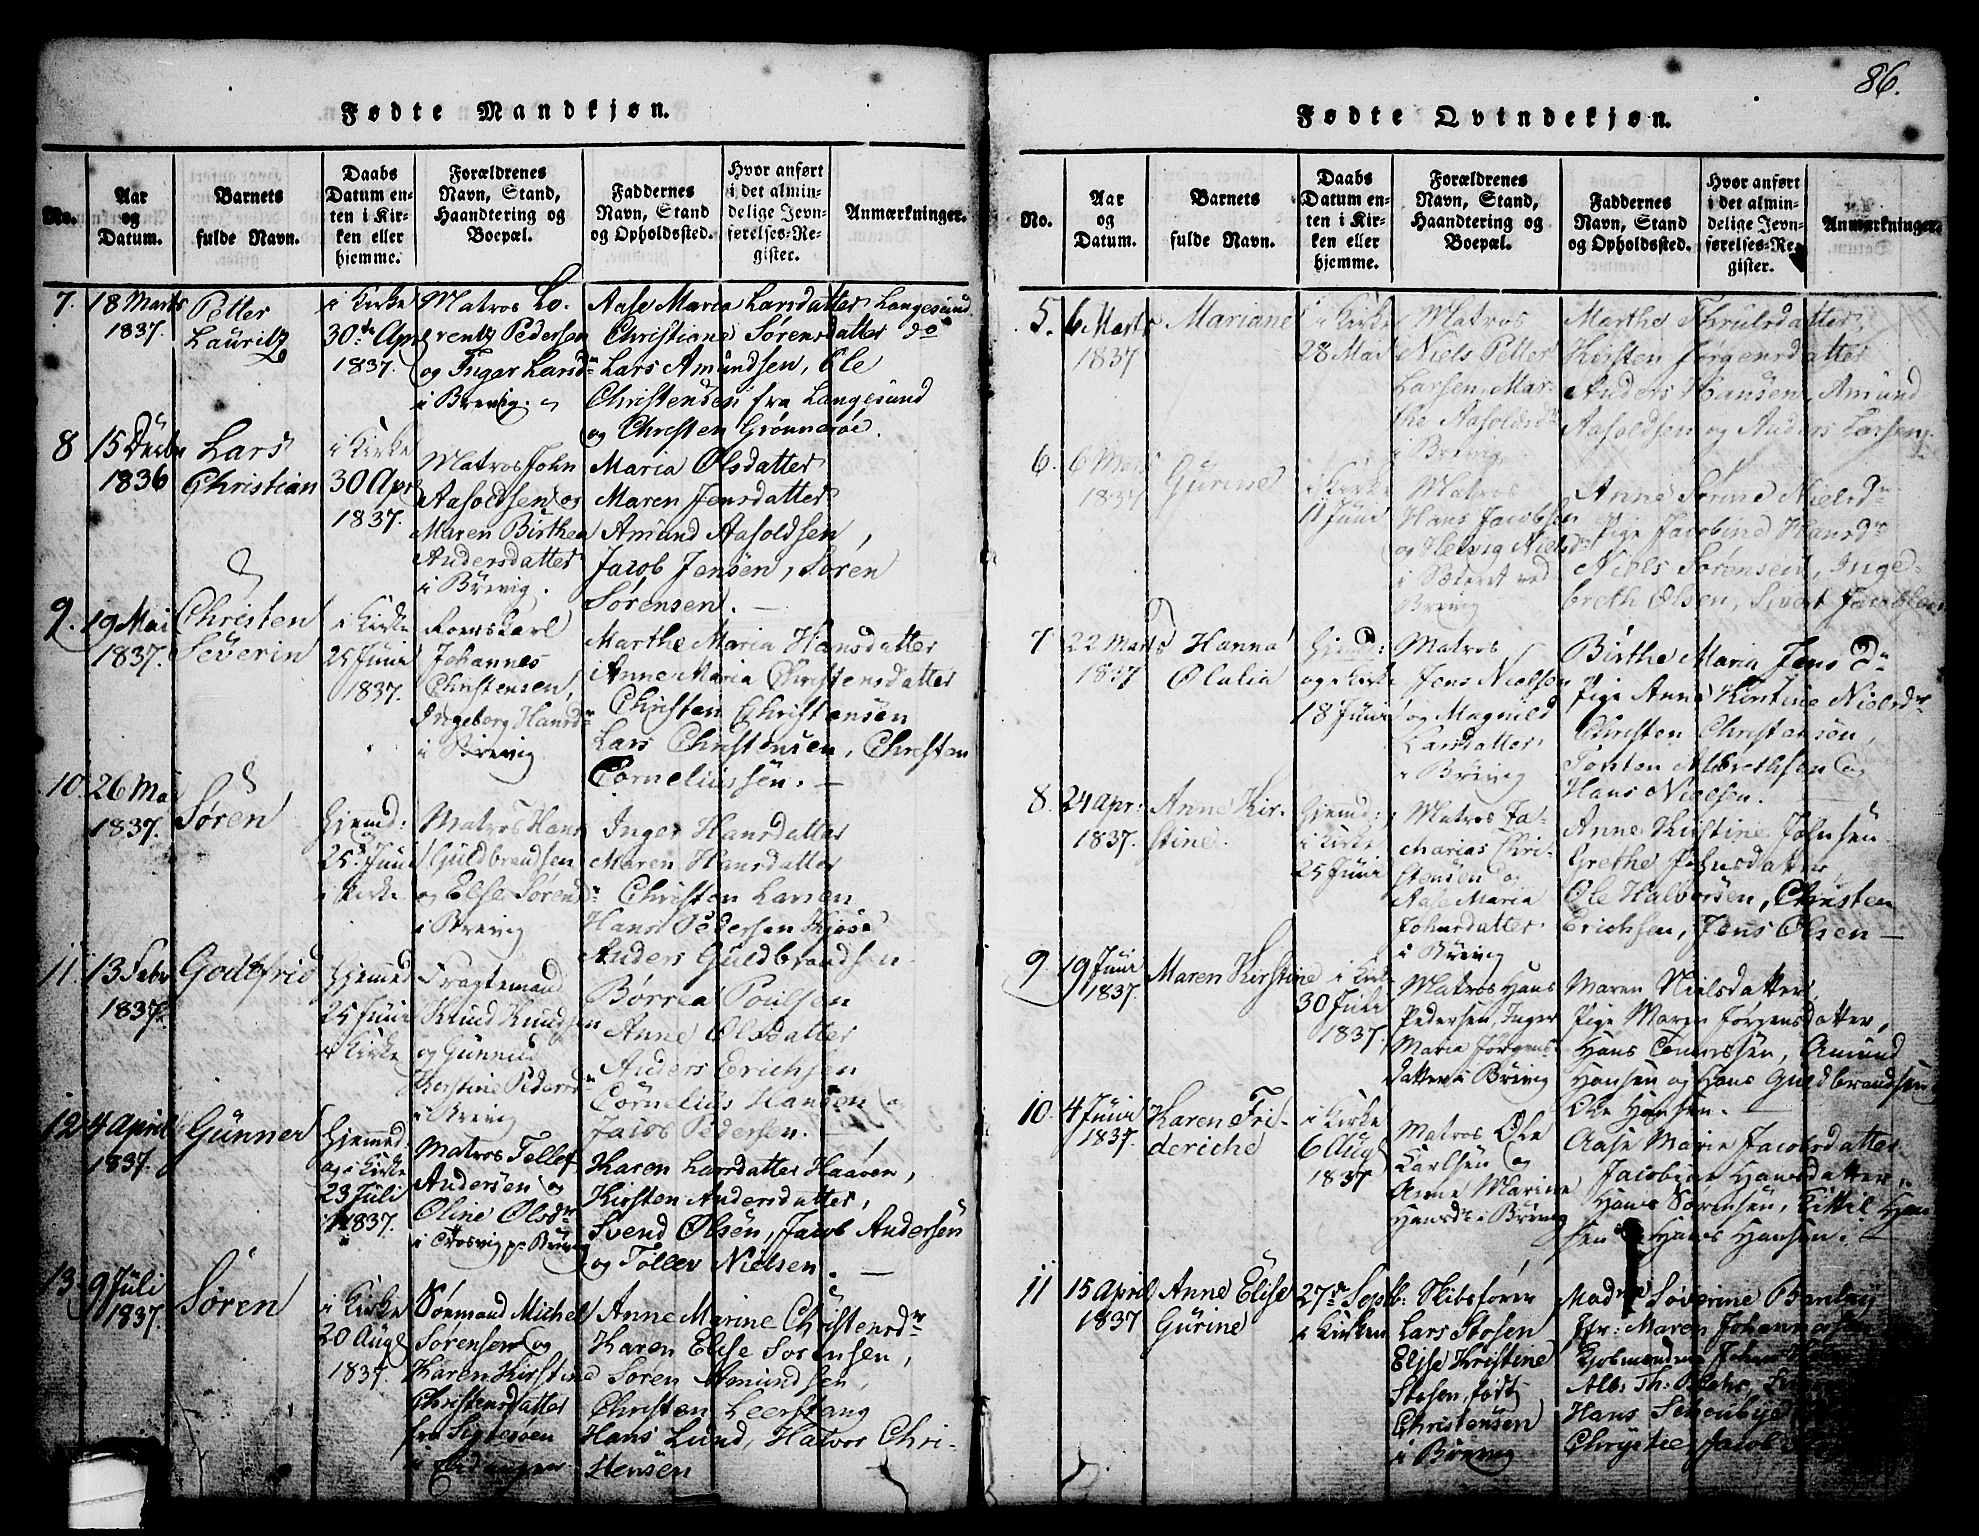 86.
Fødte Mandkjøn.
No.
Aar
og
Datum.
Barnets
fulde Navn.
Daabs
Datum en-
ten i Kir-
ken eller
hjemme.
Forældrenes
Navn, Stand,
Haandtering og
Boepæl.
Faddernes
Navn, Stand
og Opholdssted.
Hvor anført
i det almin-
delige Jevn-
førelses-Re-
gister.
Anmærkninger.
7. 18 Marts
1837.
Petter
Lauritz
i Kirke
30te Apr
1837.
Matros Lo-
rentz Pedersen
og Inger Larsdr
i Brevig.
Aase Maria Larsdatter Langesund
Christiane Sørensdatter do
Lars Amundsen, Ole
Christensen fra Langesund
og Christen Grønnerøe.
8 15 Decbr
1836
Lars
Christian
i Kirke
30 Apr
1837.
Matros John
Aasoldsen og
Maren Birthea
Andersdatter
i Brevig.
Maria Olsdatter
Maren Jensdatter
Amund Aasoldsen,
Jacob Jensen, Søren
Sørensen.
9. 19 Mai
1837.
Christen
Severin
i Kirke
25 Juni
1837.
Roerskarl
Johannes
Christensen,
Ingeborg Hansdr
i Brevig
Marthe Maria Hansdatter
Anne Maria Christensdatter
Christen Christensen
Lars Christensen, Christen
Corneliussen.
10. 26 Mai
1837.
Søren
Hjemd:
25. Juni
i Kirke
Matros Hans
Guldbrandsen
og Else Sørensdr
i Brevig
Inger Hansdatter
Maren Hansdatter
Christen Larsen
Hans Pedersen
Anders Guldbrandsen
11. 13 Febr
1837.
Godtfrid
Hjemd
25 Juni
i Kirke
Fragtemand
Knud Knudsen
og Gunnild
Kirstine Pedersdr
i Brevig
Børrea Poulsen
Anne Olsdatter
Anders Erichsen
Cornelius Hansen og
Jacob Pedersen.
12 4 April
1837.
Gunner
Hjemd
og i Kirke
23 Juli
1837.
Matros Tellef
Andersen og
Oline Olsdr
Karen Larsdatter Haaven,
Kirsten Andersdatter,
Svend Olsen, Jacob Andersen
og Tollev Nielsen.
13 9 Juli
1837.
Søren
i Kirke
20 Aug
1837.
Sømand Michel
Sørensen og
Karen Kirstine
Christensdatter
Anne Marine Christensdr
Karen Elise Sørensen,
Søren Amundsen,
Christen Leerstang
Hans Lund, Halvor Chri-
stensen
Fødte Qvindekjøn.
No.
Aar
og
Datum.
Barnets
fulde Navn.
Daabs
Datum en-
ten i Kir-
ken eller
hjemme.
Forældrenes
Navn, Stand,
Haandtering og
Boepæl.
Faddernes
Navn, Stand
og Opholdssted.
Hvor anført
i det almin-
delige Jevn-
førelses-Re-
gister.
Anmærkninger.
5. 6 Marts
1837
Mariane
i Kirke
28 Mai
Matros
Niels Petter
Larsen, Mar-
the Aasoldsdr
i Brevig
Marthe Thrulsdatter,
Kirsten Jørgensdatter
Anders Hansen, Amund
Aasoldsen og Anders Larsen.
6. 6 Mars
1837
Gurine
i Kirke
11 Juni
Matros
Hans Jacobsen
og Helvig Nielsdr
Brevig
Anne Sørine Nielsdr
Pige Jacobine Hansdr
Niels Sørensen, Inge-
breth Olsen, Sivert Jacobsen
7 22 Marts
1837
Hanna
Olalia
Hjemd:
og i Kirke
18 Juni
Matros
Jens Nielsen
og Magnild
Larsdatter
i Brevig
Birthe Maria Jens Dr
Pige Anne Kirstine Nielsdr
Christen Christensen,
Torsten Albrethsen og
Hans Nielsen.
8. 24 Apr:
1837.
Anne Kir-
stine.
Hjemd:
i Kirke
25 Juni
Matros Za-
charias Chri-
stensen og
Aase Maria
Johnsdatter
i Brevig
Anne Kirstine Johnsen
Grethe Johnsdatter,
Ole Halvorsen, Christen
Erichsen, Jens Olsen
9 19 Juni
1837.
Maren Kirstine
i Kirke
30 Juli
1837.
Matros Hans
Pedersen, Inger
Maria Jørgens-
datter i Brevig
Maren Nielsdatter,
Pige Maren Jørgensdatter,
Hans Tomassen, Amund
Hansen og Hans Guldbrandsen
Ole Hansen.
10. 4 Juni
1837.
Karen Fri-
deriche
i Kirke
6 Aug
1837
Matros Ole
Carlsen og
Anne Marine
Hansdr i Brevig
Aase Marie Jacobsdatter
Jacobine Hansdatter,
Hans Sørensen, Kittil Han-
sen Hans Hansen.
11 15 April
1837
Anne Elise
Gurine
27de Septb:
i Kirken
Skibsfører
Lars Stosen
Elise Kristine
Stosen, født
Christensen
i Brevig
Madme Søverine
Jfr: Maren Johannesen
Kjøbmændene
Alb: Th:
Hans
Jacob